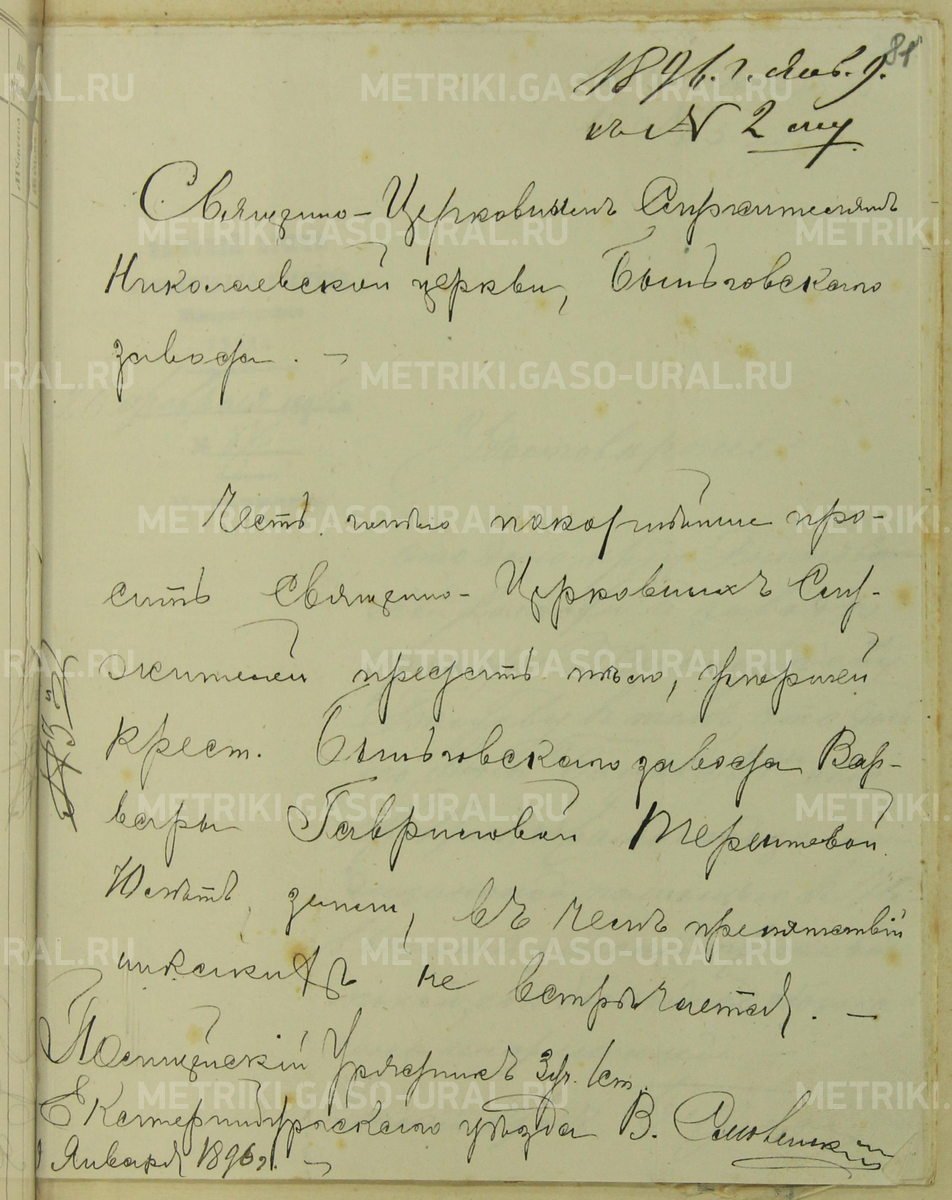 81
1896. г. Янв. 9.
къ № 2 му
Священно-Церковнымъ Служителямъ
Николаевской церкви, Бынговскаго
завода. —
Честь имѣю покорнѣйше про-
сить Священно-Церковныхъ Слу-
жителей предать тѣло, умершей
крест. Бынговскаго завода Вар-
вары Гавриловой Терентевой
10 лѣтъ, земли, въ чемъ препятствій
никакихъ не встрѣчается. —
Полицейскій Урядникъ 3 уч. 1 ст.
Екатеринбургскаго уѣзда В.
Января 1896 г. —
METRIKI.GASO-URAL.RU